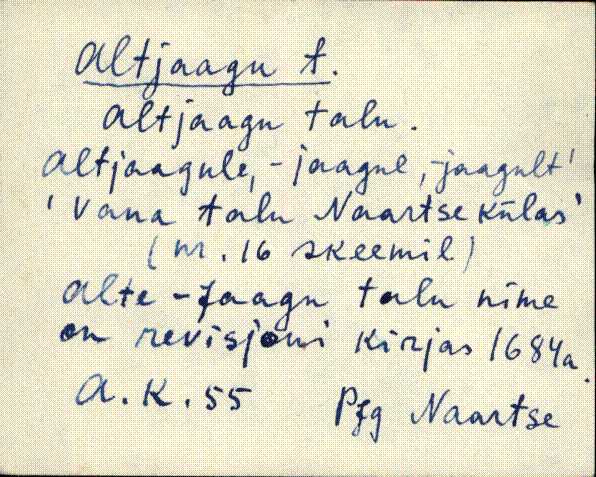 Altjaagu t.
Altjaagu talu.
Altjaagule, -jaagul, -jaagult'
'Vana talu Naartse külas'
(nr. 16 skeemil)
Alte-Jaagu talu nime
on revisjoni kirjas 1684a.
A.K.55 Pjg Naartse